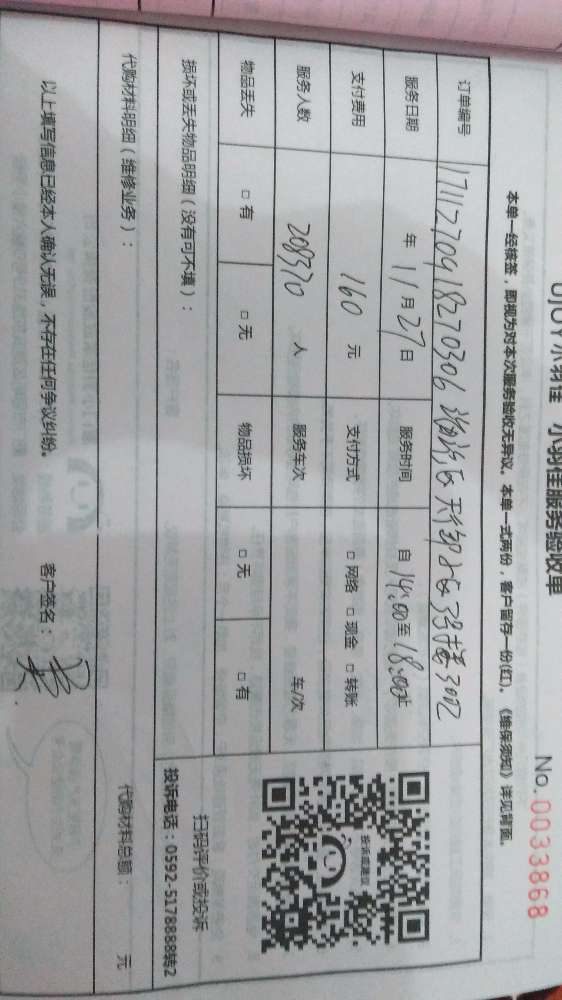 UJOY小羽佳 小羽佳服务验收单
No.0033868
本单一经核签，即视为对本次服务验收无异议。本单一式两份，客户留存一份(红)。《维保须知》详见背面。
订单编号 1711270918270306 3002
服务日期 年 11月27日 服务时间 自 14:00 至 18:00止
支付费用 160 元 支付方式 □网络 □现金 □转账
服务人数 208370 人 服务车次 车/次
物品丢失 □有 □无 物品损坏 □无 □有
投诉或建议
扫码评价或投诉
投诉电话：0592-5178888转2
损坏或丢失物品明细（没有可不填）：
代购材料明细（维修业务）： 代购材料总额： 元
以上填写信息已经本人确认无误，不存在任何争议纠纷。 客户签名：